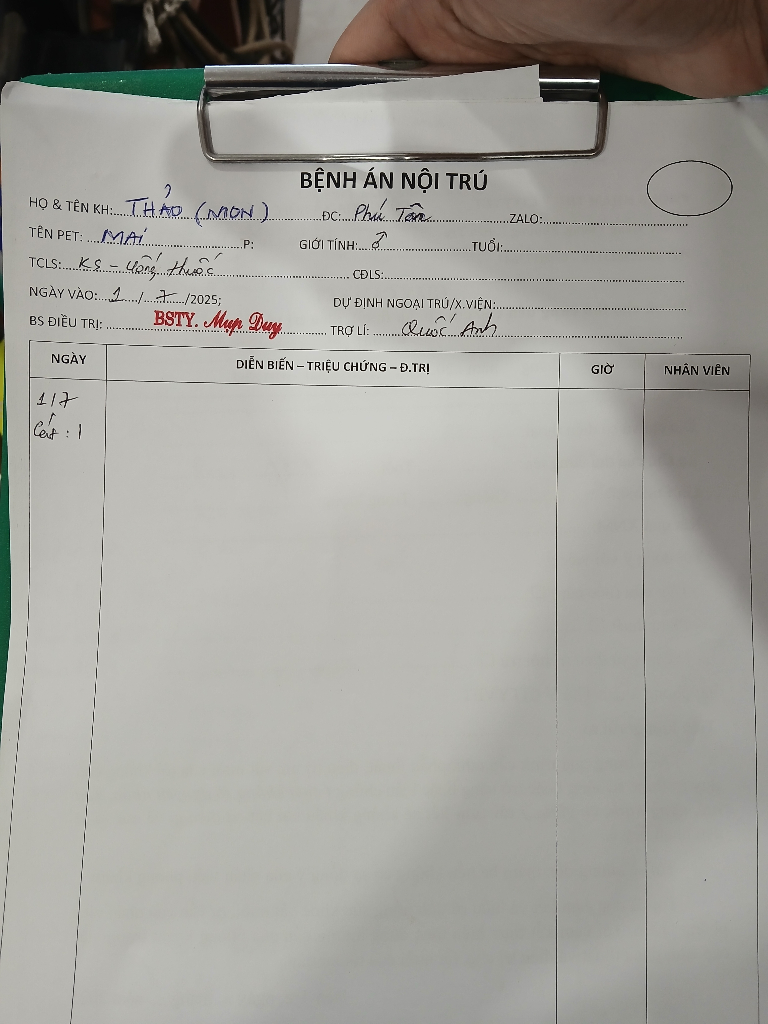 BỆNH ÁN NỘI TRÚ
HỌ & TÊN KH: THẢO (MON) ĐC: Phú Tân ZALO:
TÊN PET: MAI P: GIỚI TÍNH: ♂ TUỔI:
TCLS: KS - uống thuốc CĐLS:
NGÀY VÀO: 1 / 7 /2025; DỰ ĐỊNH NGOẠI TRÚ/X.VIỆN:
BS ĐIỀU TRỊ: BSTY. Mup Duy TRỢ LÍ: Quốc Anh
NGÀY DIỄN BIẾN – TRIỆU CHỨNG – Đ.TRỊ GIỜ NHÂN VIÊN
1/7
: 1